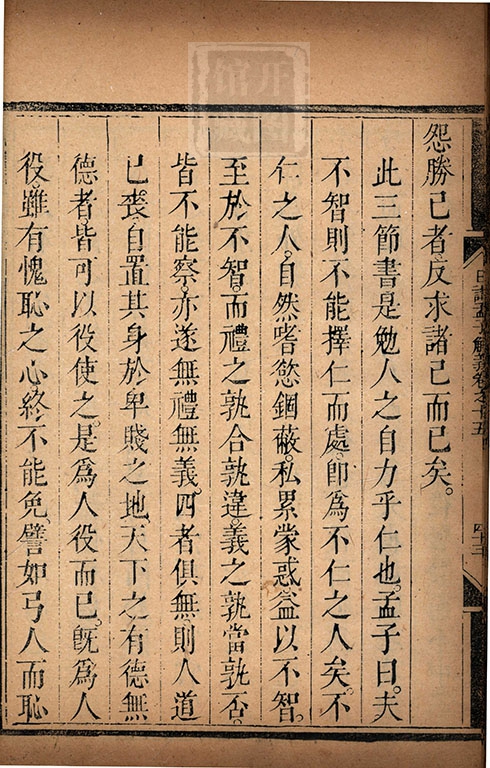 怨勝己者反求諸己而已矣。
此三節書是勉人之自力乎仁也。孟子曰。夫
不智則不能擇仁而處。卽爲不仁之人矣。不
仁之人。自然嗜慾錮蔽。私累蒙惑。益以不智。
至於不智。而禮之孰合孰違。義之孰當孰否。
皆不能察。亦遂無禮無義。四者俱無則人道
已喪。自置其身於卑賤之地。天下之有德無
德者皆可以役使之。是爲人役而已。旣爲人
役。雖有愧恥之心終不能免。譬如弓人而恥
日講四書解義卷之十五